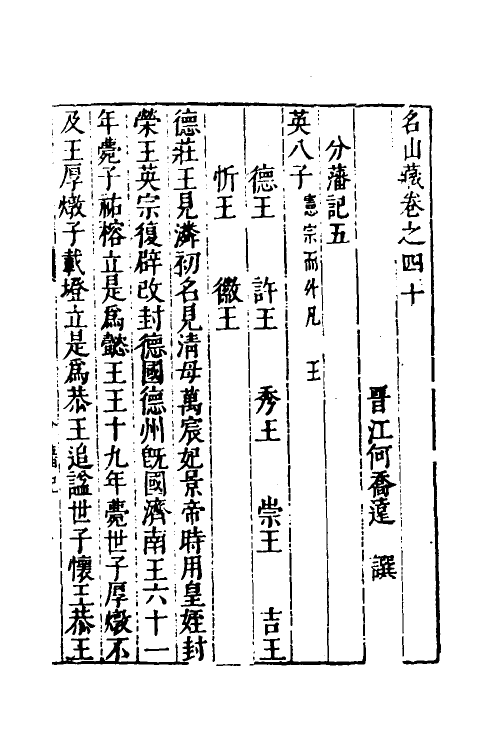 名山藏卷之四十
晋江何喬遠 譔
分藩記五
英八子憲宗而外凡 王
德王 許王 秀王 崇王 吉王
忻王 徽王
德莊王見潾初名見清母萬宸妃景帝時用皇姪封
榮王英宗復辟改封德國德州旣國濟南王六十一
年薨子祐榕立是爲懿王王十九年薨世子厚燉不
及王厚燉子載墱立是爲恭王追謚世子懷王恭王